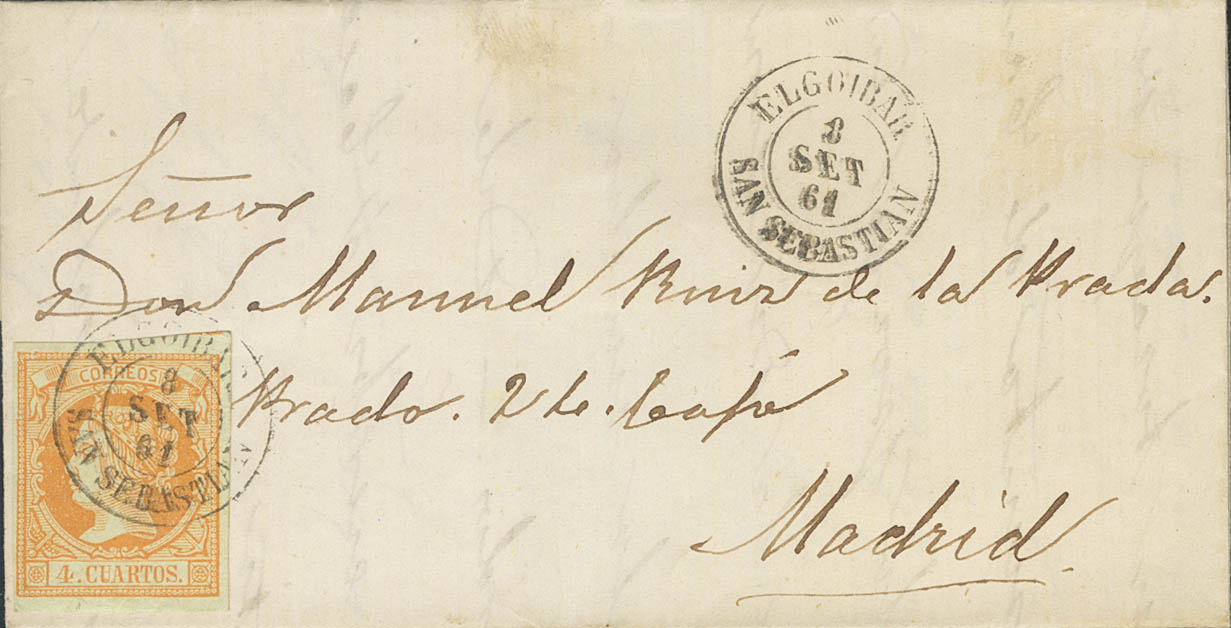 ELGOIBAR
8
SET
61
SAN SEBASTIAN
Señor
Don Manuel Ruiz de la Prada.
Prado. 2 Café
Madrid.
ELGOIBAR
8
SET
61
SAN SEBASTIAN
CORREOS
4. CUARTOS.